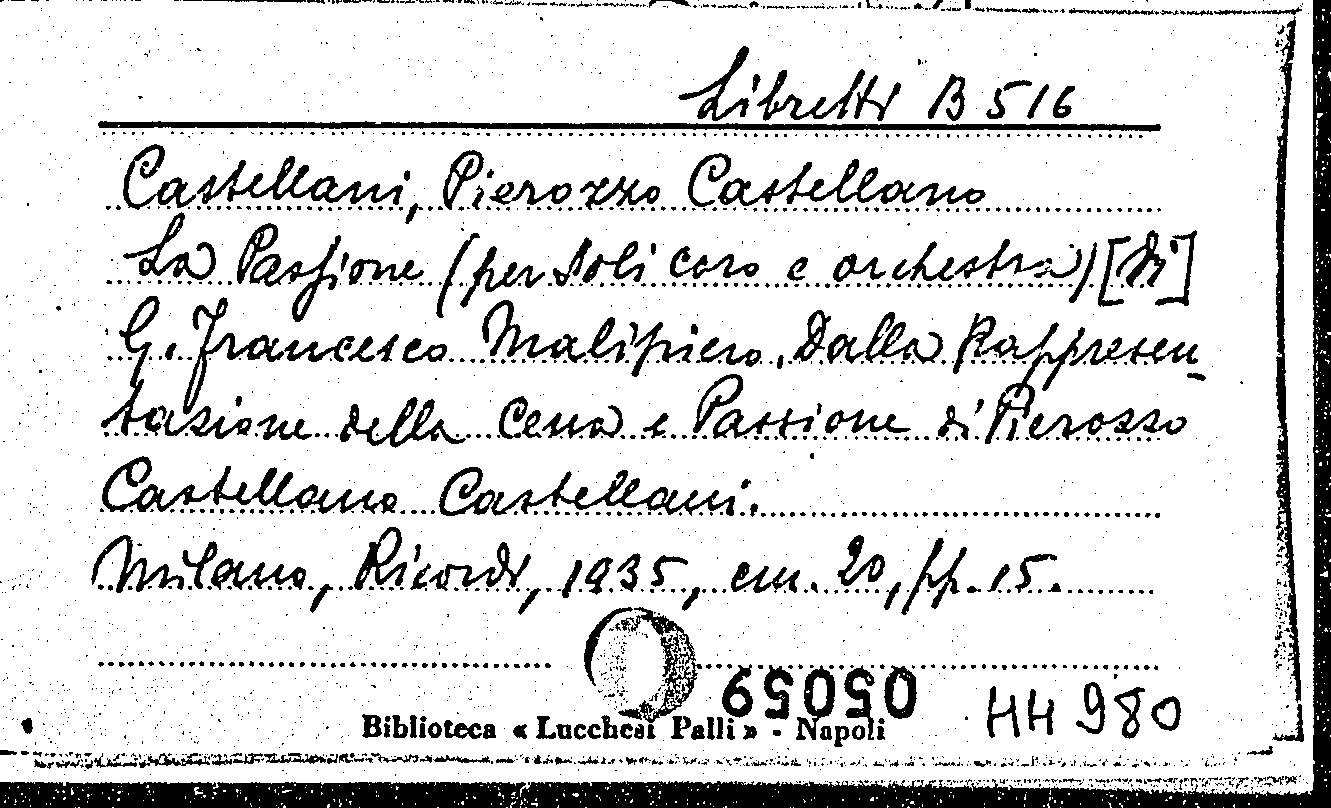 Libretti B 516
Castellani, Pierozzo Castellano
La Passione (per soli coro e orchestra) [di]
G. Francesco Malipiero. Dalla Rappresen-
tazione della Cena e Passione di Pierozzo
Castellano Castellani.
Milano, Ricordi, 1935, cm. 20, pp. 15.
05059
HH 980
Biblioteca « Lucchesi Palli » - Napoli